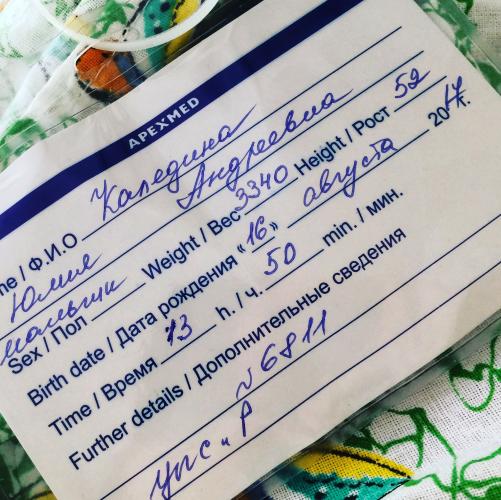 APEXMED
Каледина
ne / Ф.И.О Андреевна
Юлия
Weight / Вес 3340 Height / Рост 52
Sex / Пол мальчик
Birth date / Дата рождения «16» августа 2017г.
Time / Время 13 h. / ч. 50 min. / мин.
Further details / Дополнительные сведения
N 6811